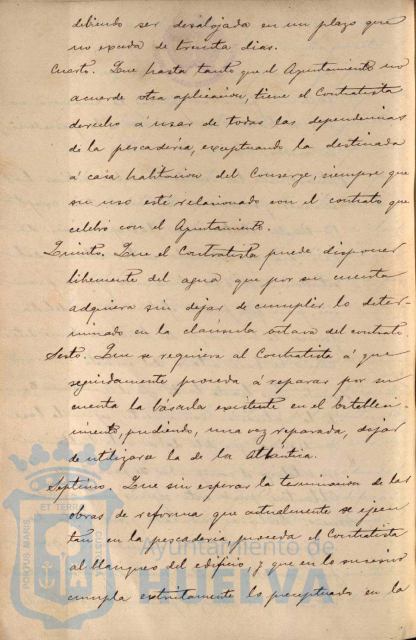 debiendo ser desalojada en un plazo que
no exceda de treinta dias.
Cuarto. Que hasta tanto que el Ayuntamiento no
acuerde otra aplicacion, tiene el Contratista
derecho á usar de todas las dependencias
de la pescadería, exceptuando la destinada
á casa habitacion del Conserge, siempre que
su uso esté relacionado con el contrato que
celebró con el Ayuntamiento.
Quinto. Que el Contratista puede disponer
libremente del agua que por su cuenta
adquiera sin dejar de cumplir lo deter-
minado en la clausula octava del contrato
Sesto. Que se requiera al Contratista á que
seguidamente proceda á reparar por su
cuenta la báscula existente en el
pudiendo, una vez reparada, dejar
de utilizarse la de la
Septimo. Que sin esperar la terminacion de las
obras de reforma que actualmente se ejecu-
tan en la pescadería, proceda el Contratista
al blanqueo del edificio, y que en lo sucesivo
cumpla estrictamente lo preceptuado en la
PORTUS MARIS
ET TERRAE
Ayuntamiento de
HUELVA